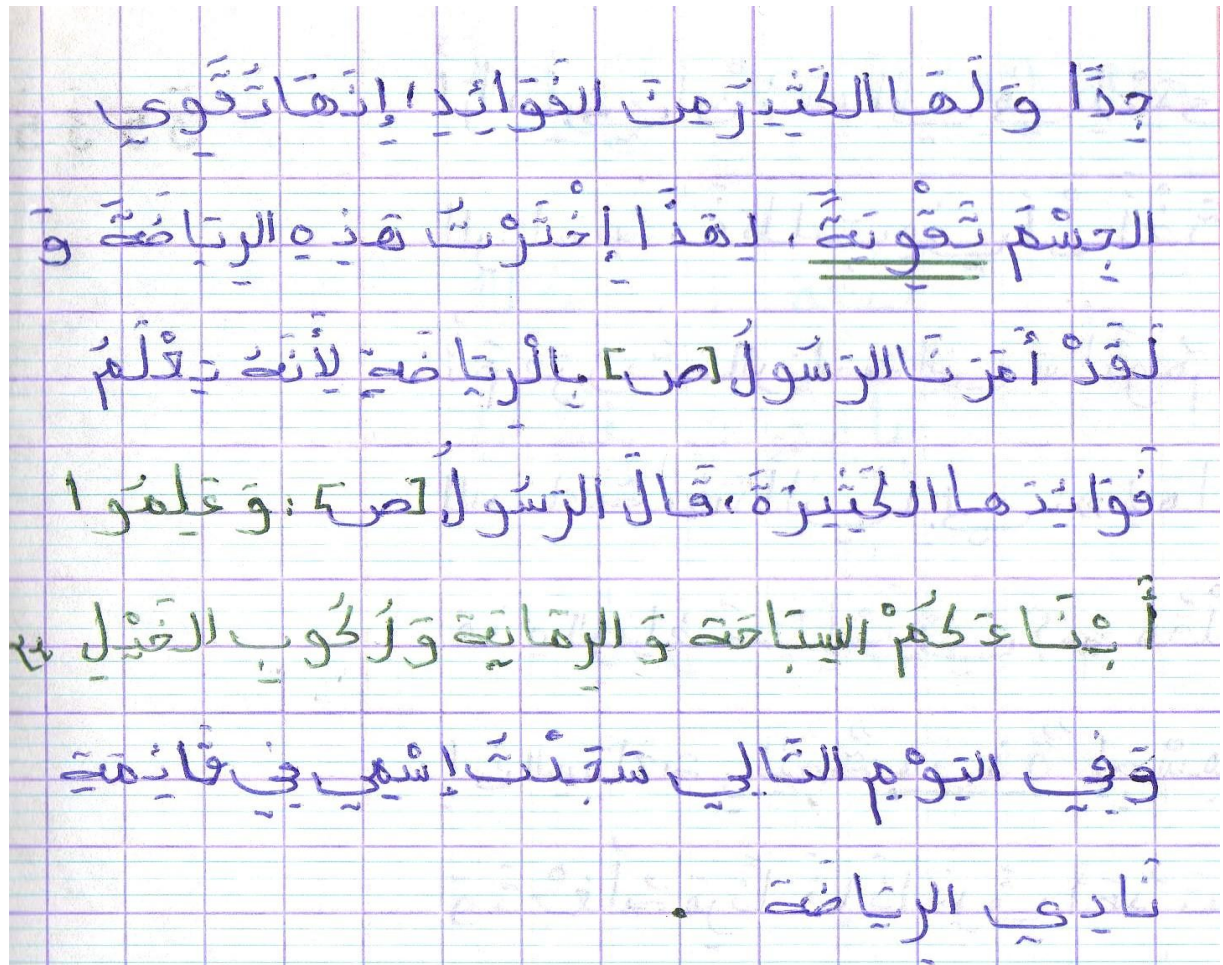 جِدًّا وَ لَهَا الكَثِيرَ مِنَ الفَوَائِدِ؛ إِنَهَا تُقَوِي
الجِسْمَ تَقْوِيَةً. لِهَذَا إِخْتَرْتُ هَذِهِ الرِيَاضَةَ وَ
لَقَدْ أَمَرَنَا الرَسُولُ [ص] بِالْرِيَاضَةِ لِأَنَهُ يَعْلَمُ
فَوَائِدَها الكَثِيرَةَ، قَالَ الرَسُولُ [ص]: وَ عَلِمُوا
أَبْنَاءَكُمْ السِبَاحَة وَ الرِمَايَة وَ رُكُوبِ الخَيْلِ "
وَفِي اليَوْمِ التَالِي سَجَدْتُ إِسْمِي فِي قَائِمَةِ
نَادِي الرِيَاضَة .